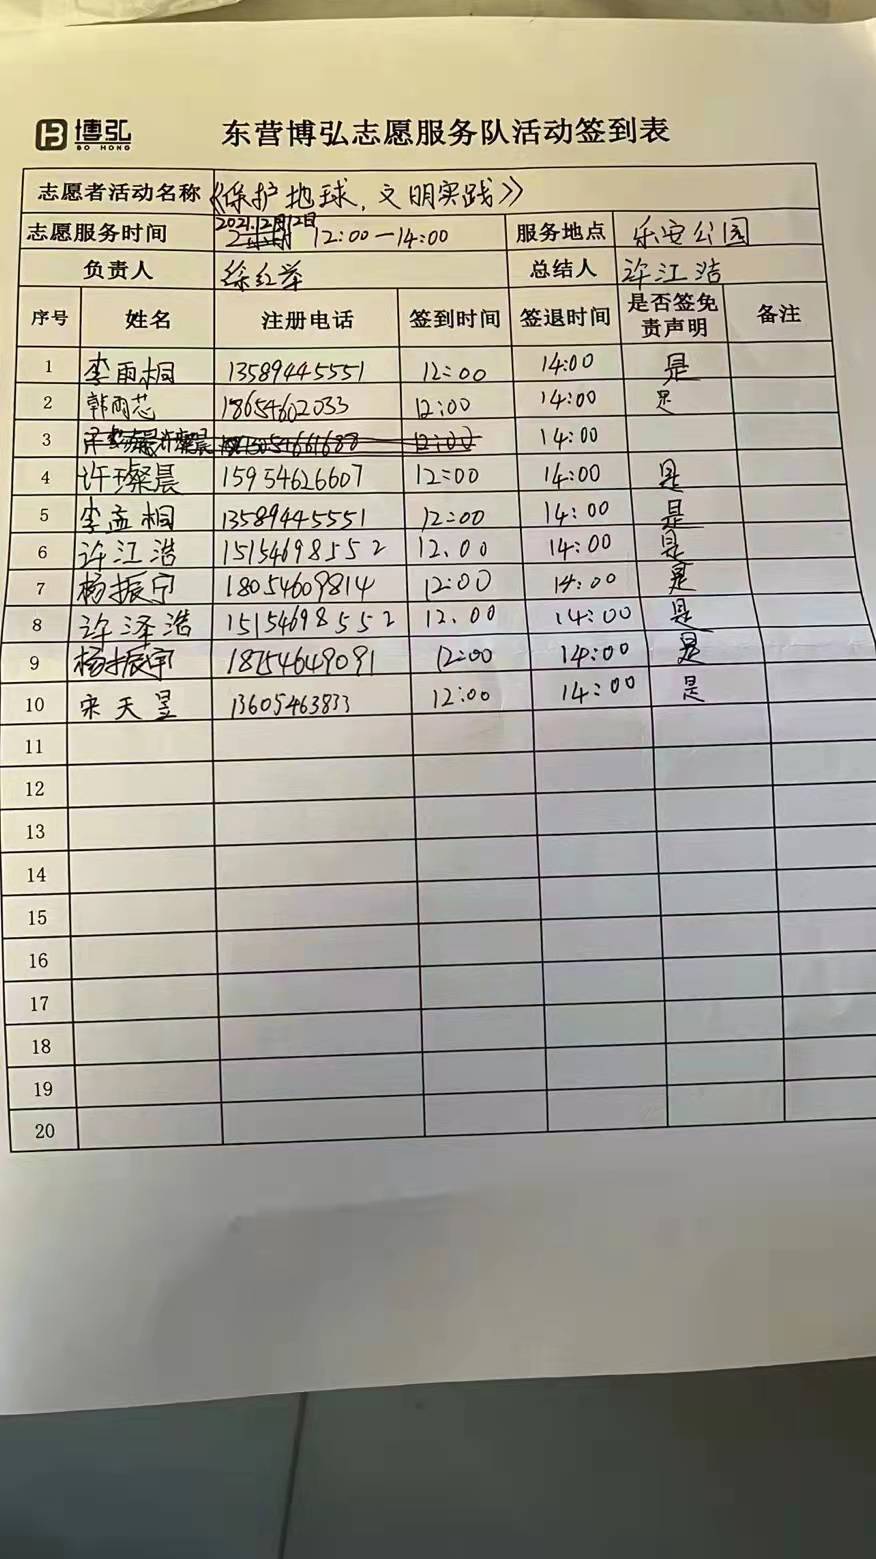 博弘
BO HONG
东营博弘志愿服务队活动签到表
志愿者活动名称 《保护地球,文明实践》
志愿服务时间 2021.12月12日 12:00—14:00 服务地点 乐安公园
负责人 徐红举 总结人 许江浩
序号 姓名 注册电话 签到时间 签退时间 是否签免责声明 备注
1 李雨桐 13589445551 12:00 14:00 是
2 韩雨芯 18654602033 12:00 14:00 是
3 12:00 14:00
4 许璨晨 15954626607 12:00 14:00 是
5 李孟桐 13589445551 12:00 14:00 是
6 许江浩 15154698552 12.00 14:00 是
7 杨振宁 18054609814 12:00 14:00 是
8 许泽浩 15154698552 12.00 14:00 是
9 杨振宇 18754649091 12:00 14:00 是
10 宋天昱 13605463833 12:00 14:00 是
11
12
13
14
15
16
17
18
19
20